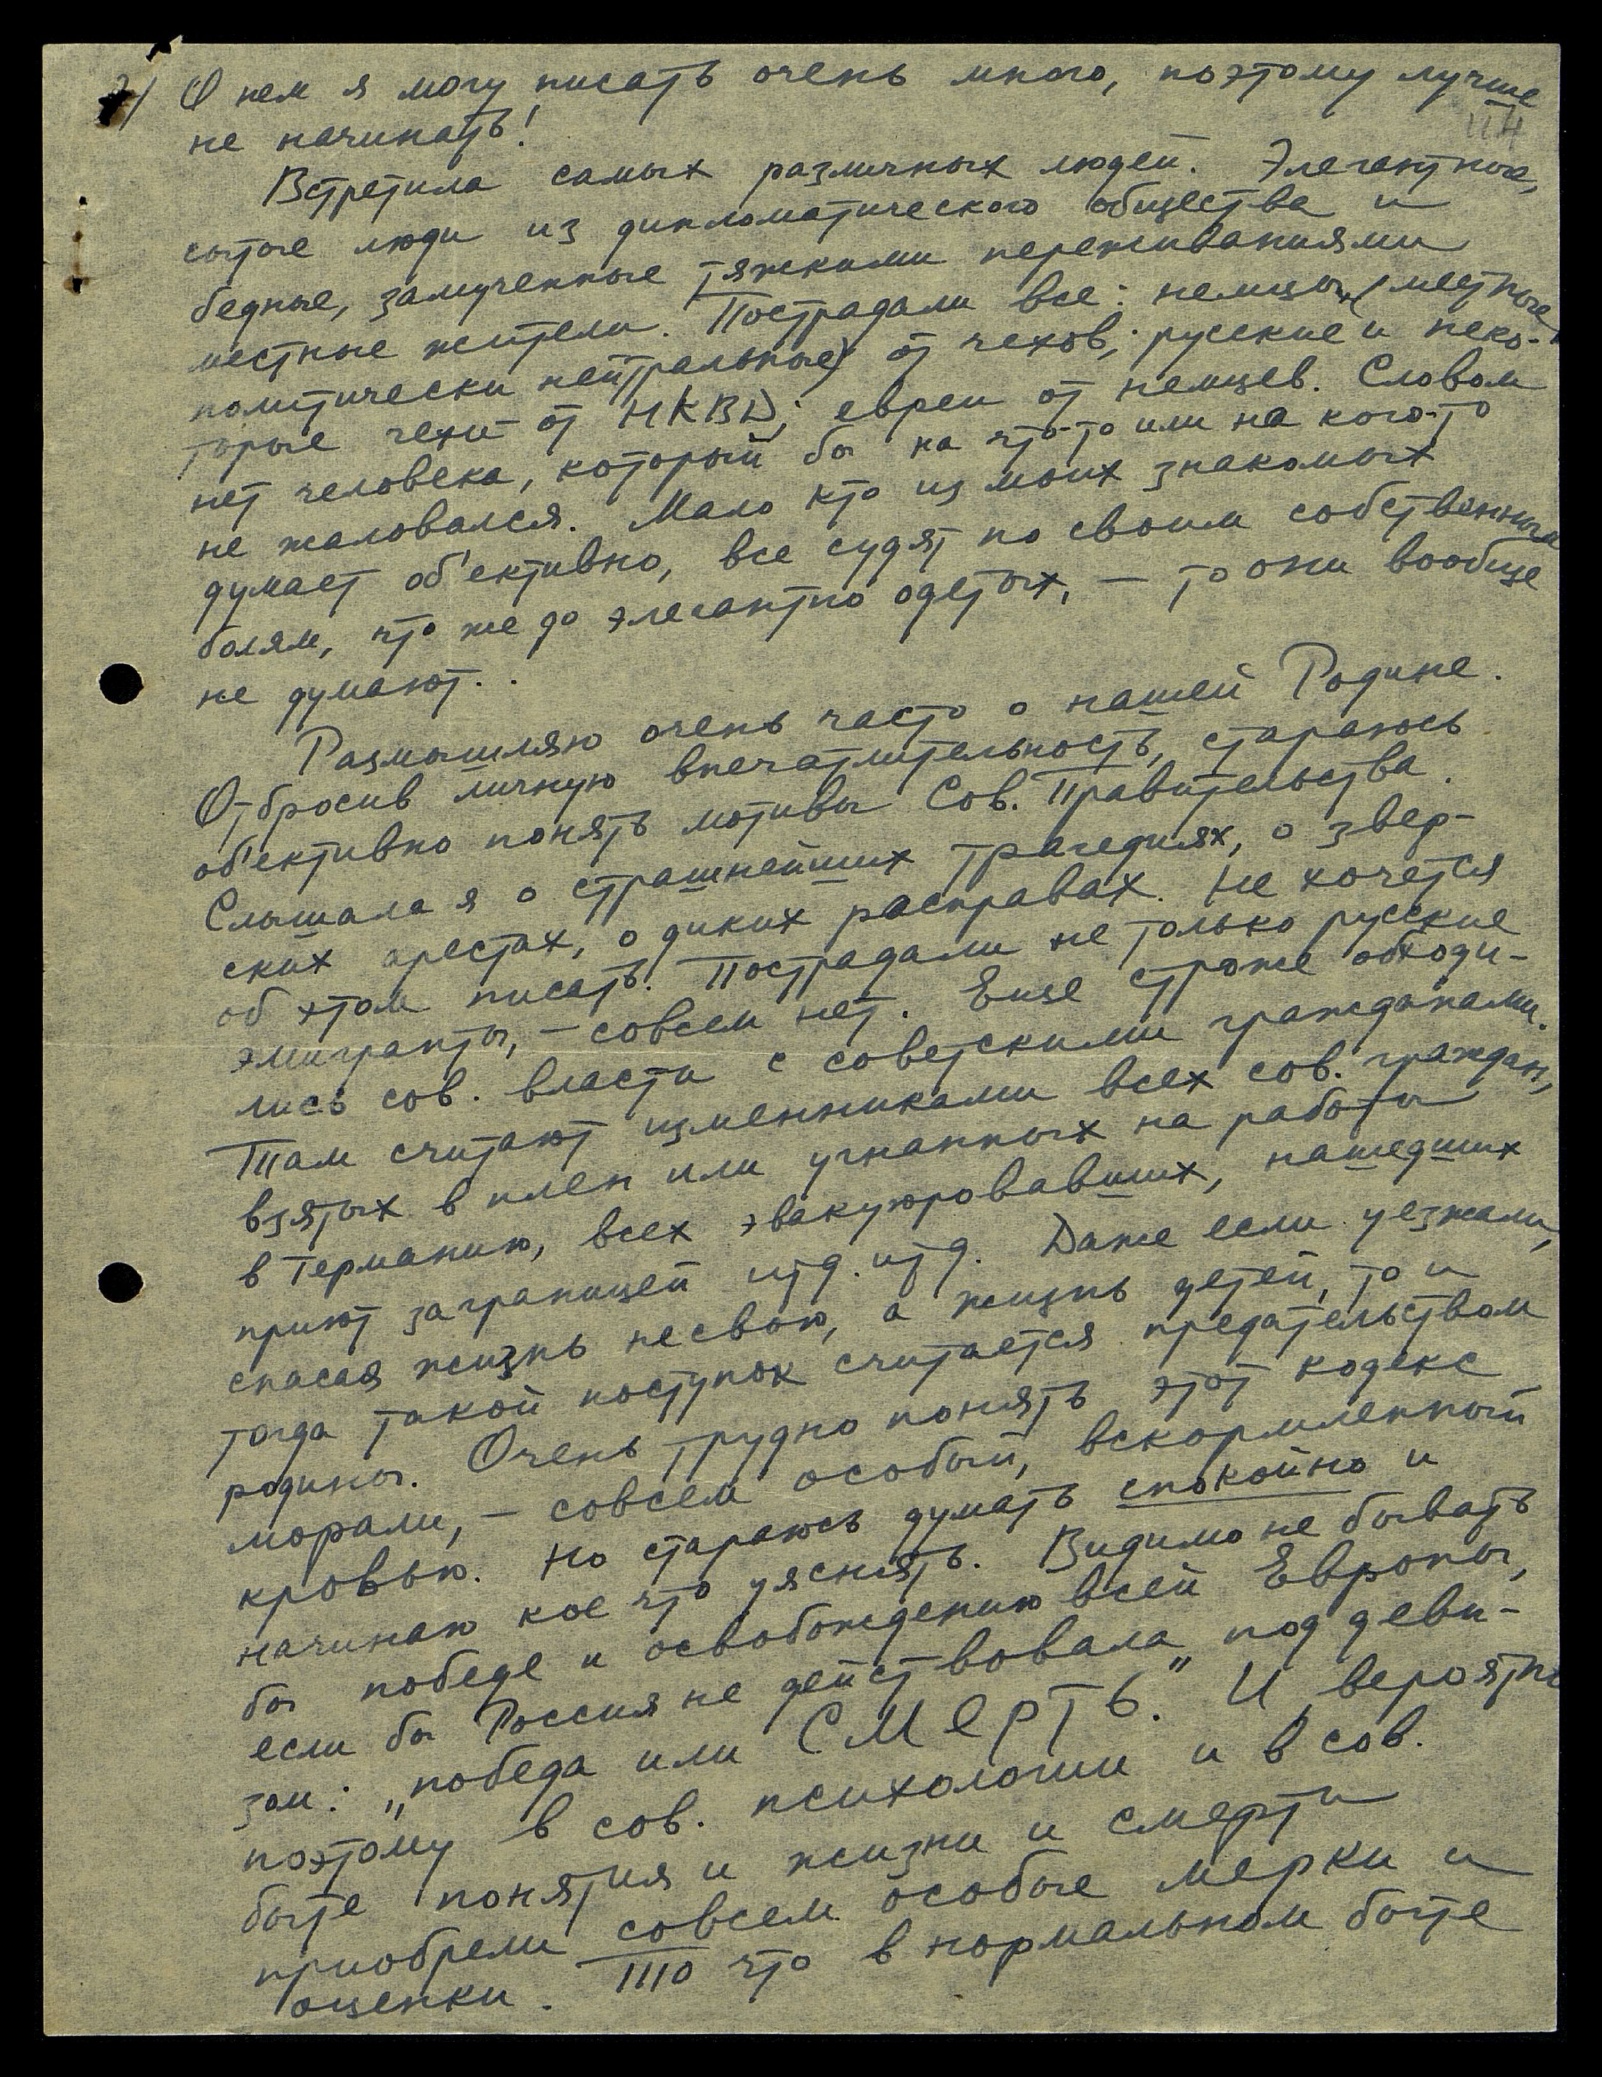 2/ О нем я могу писать очень много, поэтому лучше
114
не начинать!
Встретила самых различных людей. Элегантные,
сытые люди из дипломатического общества и
бедные, замученные тяжкими переживаниями
местные жители. Пострадали все: немцы (местные,
политически нейтральные) от чехов; русские и неко-
торые чехи – от НКВД; евреи от немцев. Словом
нет человека, который бы на что-то или на кого-то
не жаловался. Мало кто из моих знакомых
думает об'ективно, все судят по своим собственным
болям, что же до элегантно одетых, – то они вообще
не думают..
Размышляю очень часто о нашей Родине.
Отбросив личную впечатлительность, стараюсь
об'ективно понять мотивы Сов. Правительства.
Слышала я о страшнейших трагедиях, о звер-
ских арестах, о диких расправах. Не хочется
об этом писать. Пострадали не только русские
эмигранты, – совсем нет. Еще строже обходи-
лись сов. власти с советскими гражданами.
Там считают изменниками всех сов. граждан,
взятых в плен или угнанных на работы
в Германию, всех эвакуировавших, нашедших
приют заграницей и т.д. и т.д. Даже если уезжали,
спасая жизнь не свою, а жизнь детей, то и
тогда такой поступок считается предательством
родины. Очень трудно понять этот кодекс
морали, – совсем особый, вскормленный
кровью. Но стараюсь думать спокойно и
начинаю кое что уяснять. Видимо не бывать
бы победе и освобождению всей Европы,
если бы Россия не действовала под деви-
зом: „победа или смерть." И вероятно
поэтому в сов. психологии и в сов.
быте понятия и жизни и смерти
приобрели совсем особые мерки и
оценки. То что в нормальном быте